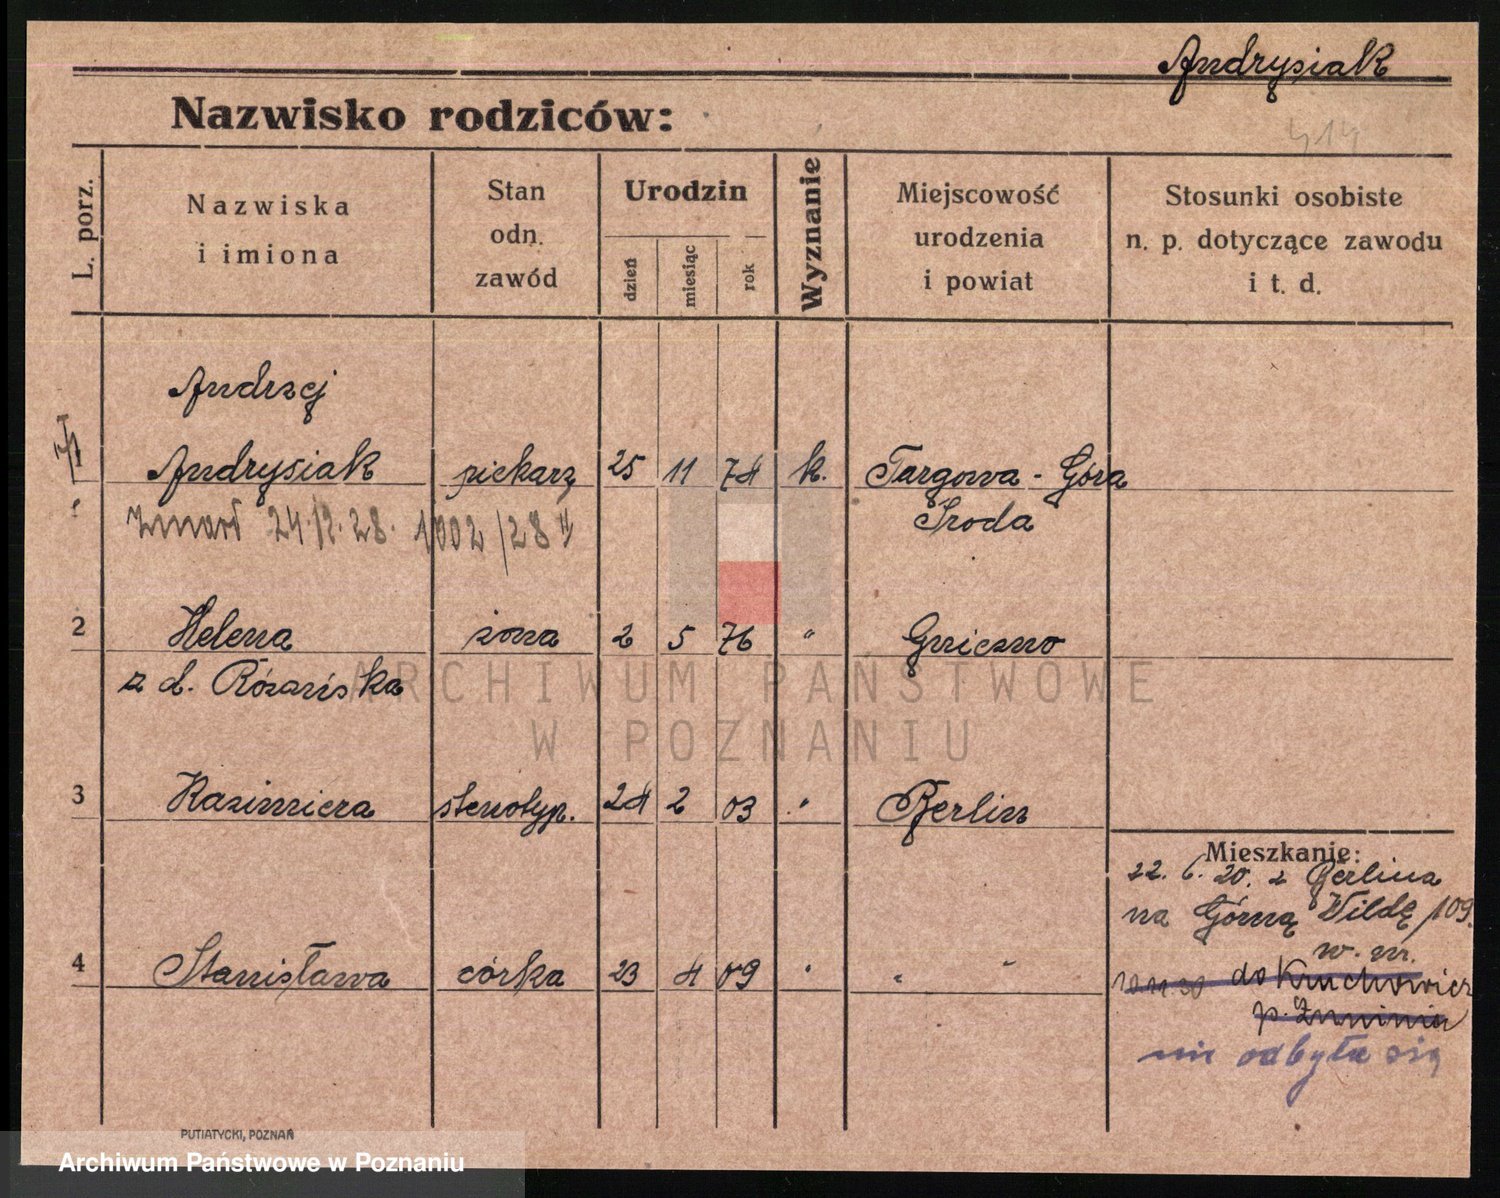 Andrysiak
Nazwisko rodziców:
L. porz.
Nazwiska
i imiona
Stan
odn.
zawód
Urodzin
dzień
miesiąc
rok
Wyznanie
Miejscowość
urodzenia
i powiat
Stosunki osobiste
n. p. dotyczące zawodu
i t. d.
Andrzej
Andrysiak piekarz 25 11 74 k. Targowa-Góra
Środa
zmarł 24.12.28. 1002/28 II
2 Helena żona 2 5 76 " Gniezno
z d. Różańska
3 Kazimiera stenotyp. 24 2 03 " Berlin
4 Stanisława córka 23 4 09 " " "
Mieszkanie:
22. 6. 20. z Berlina
na Górną Wildę 109.
w. m.
do Kruchowicz
p. Żnninie
nie odbyła się
PUTIATYCKI, POZNAŃ
ARCHIWUM PAŃSTWOWE
W POZNANIU
Archiwum Państwowe w Poznaniu